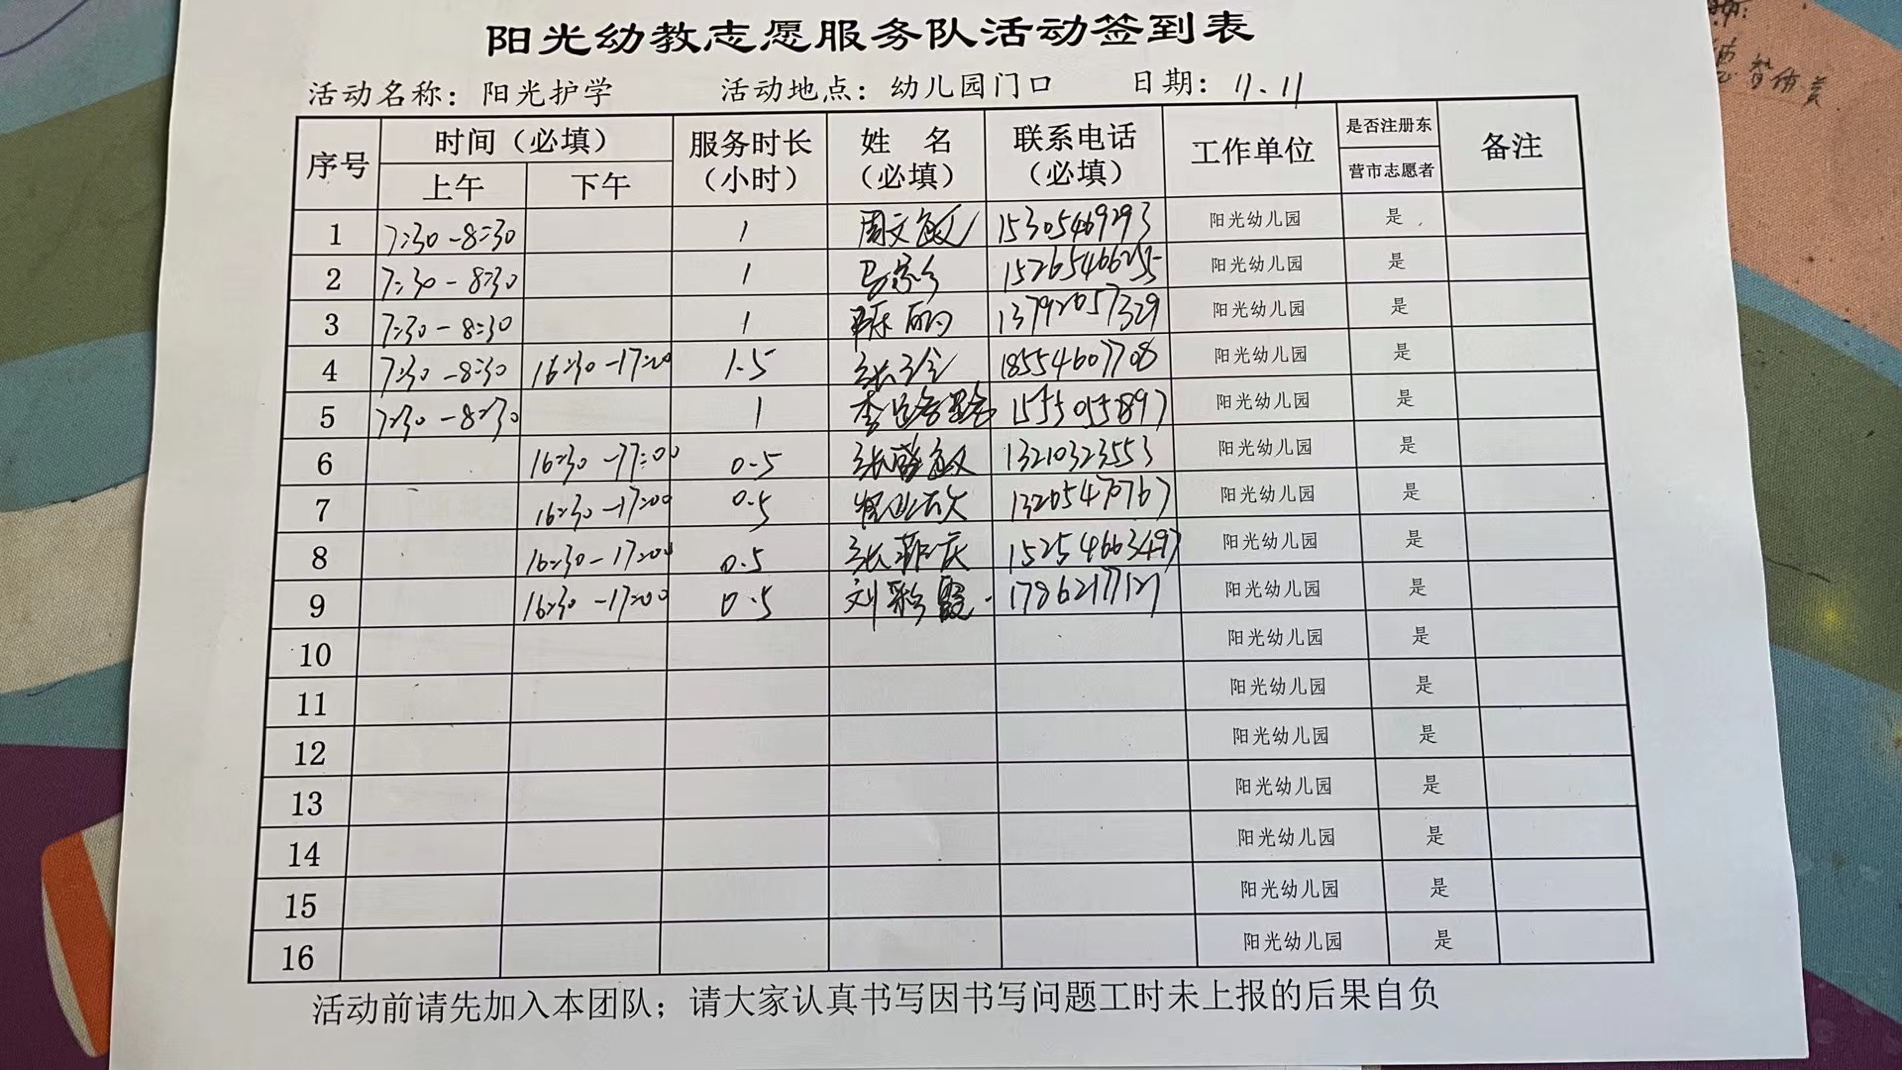 阳光幼教志愿服务队活动签到表
活动名称：阳光护学 活动地点：幼儿园门口 日期：11.11
序号 时间（必填） 服务时长（小时） 姓 名（必填） 联系电话（必填） 工作单位 是否注册东营市志愿者 备注
上午 下午
1 7:30-8:30 1 周文敏 15305469293 阳光幼儿园 是
2 7:30-8:30 1 15265466255 阳光幼儿园 是
3 7:30-8:30 1 陈丽 13792057329 阳光幼儿园 是
4 7:30-8:30 16:30-17:00 1.5 18554607708 阳光幼儿园 是
5 7:30-8:30 1 李 15550155897 阳光幼儿园 是
6 16:30-17:00 0.5 13210323553 阳光幼儿园 是
7 16:30-17:00 0.5 阳光幼儿园 是
8 16:30-17:00 0.5 15254663497 阳光幼儿园 是
9 16:30-17:00 0.5 刘彩霞 17862177127 阳光幼儿园 是
10 阳光幼儿园 是
11 阳光幼儿园 是
12 阳光幼儿园 是
13 阳光幼儿园 是
14 阳光幼儿园 是
15 阳光幼儿园 是
16 阳光幼儿园 是
活动前请先加入本团队；请大家认真书写因书写问题工时未上报的后果自负